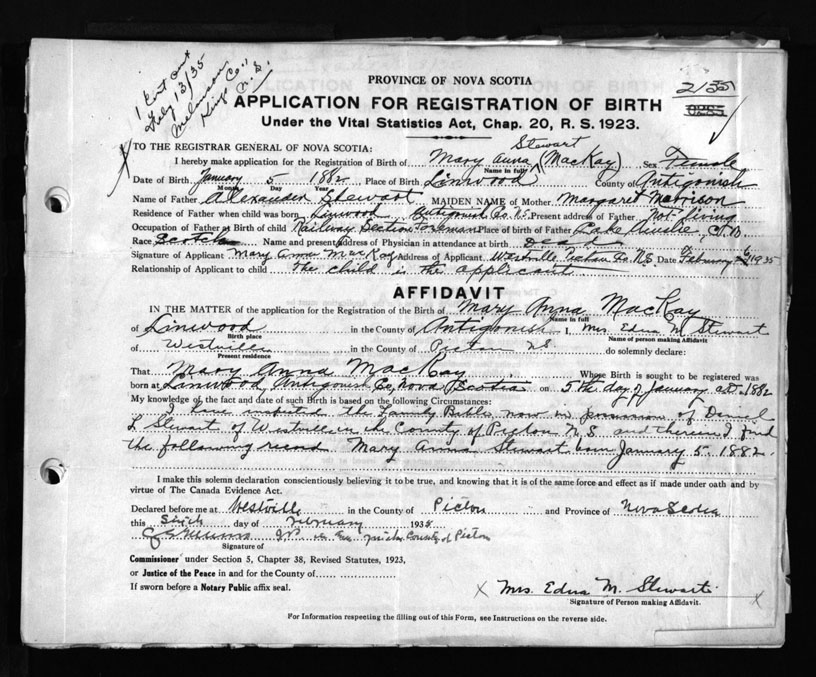 1 Cert out
July 13/35
Kings Co.,
N. S.
PROVINCE OF NOVA SCOTIA
2135
APPLICATION FOR REGISTRATION OF BIRTH
Under the Vital Statistics Act, Chap. 20, R. S. 1923.
TO THE REGISTRAR GENERAL OF NOVA SCOTIA:
Stewart
I hereby make application for the Registration of Birth of Mary Anna (MacKay) Sex Female
Name in full
Date of Birth January 5 1882 Place of Birth Linwood County of Antigonish
Month Day Year
Name of Father Alexander Stewart MAIDEN NAME of Mother Margaret Morrison
Residence of Father when child was born Linwood Antigonish Co. N.S. Present address of Father Not living
Occupation of Father at Birth of child Railway Section Foreman Place of birth of Father Lake Ainslie, C.B.
Race Scotch Name and present address of Physician in attendance at birth Dead
Signature of Applicant Mary Anna MacKay Address of Applicant Westville Pictou Co. N.S. Date February 6 1935
Relationship of Applicant to child The child is the applicant
AFFIDAVIT
IN THE MATTER of the application for the Registration of the Birth of Mary Anna MacKay
Name in full
of Linwood in the County of Antigonish I, Mrs. Edna M Stewart
Birth place Name of person making Affidavit
of Westville in the County of Pictou NS do solemnly declare:
Present residence
That Mary Anna MacKay Whose Birth is sought to be registered was
born at Linwood, Antigonish Co, Nova Scotia on 5th day of January A.D. 1882
My knowledge of the fact and date of such Birth is based on the following Circumstances:
I have inspected the Family Bible now in possession of Daniel
L Stewart of Westville in the County of Pictou N.S. and therein I find
the following record Mary Anna Stewart born January 5. 1882.
I make this solemn declaration conscientiously believing it to be true, and knowing that it is of the same force and effect as if made under oath and by
virtue of The Canada Evidence Act.
Declared before me at Westville in the County of Pictou and Province of Nova Scotia
this Sixth day of February 1935
County of Pictou
Signature of
Commissioner under Section 5, Chapter 38, Revised Statutes, 1923,
or Justice of the Peace in and for the County of
If sworn before a Notary Public affix seal.
X Mrs. Edna M. Stewart X
Signature of Person making Affidavit.
For Information respecting the filling out of this Form, see Instructions on the reverse side.